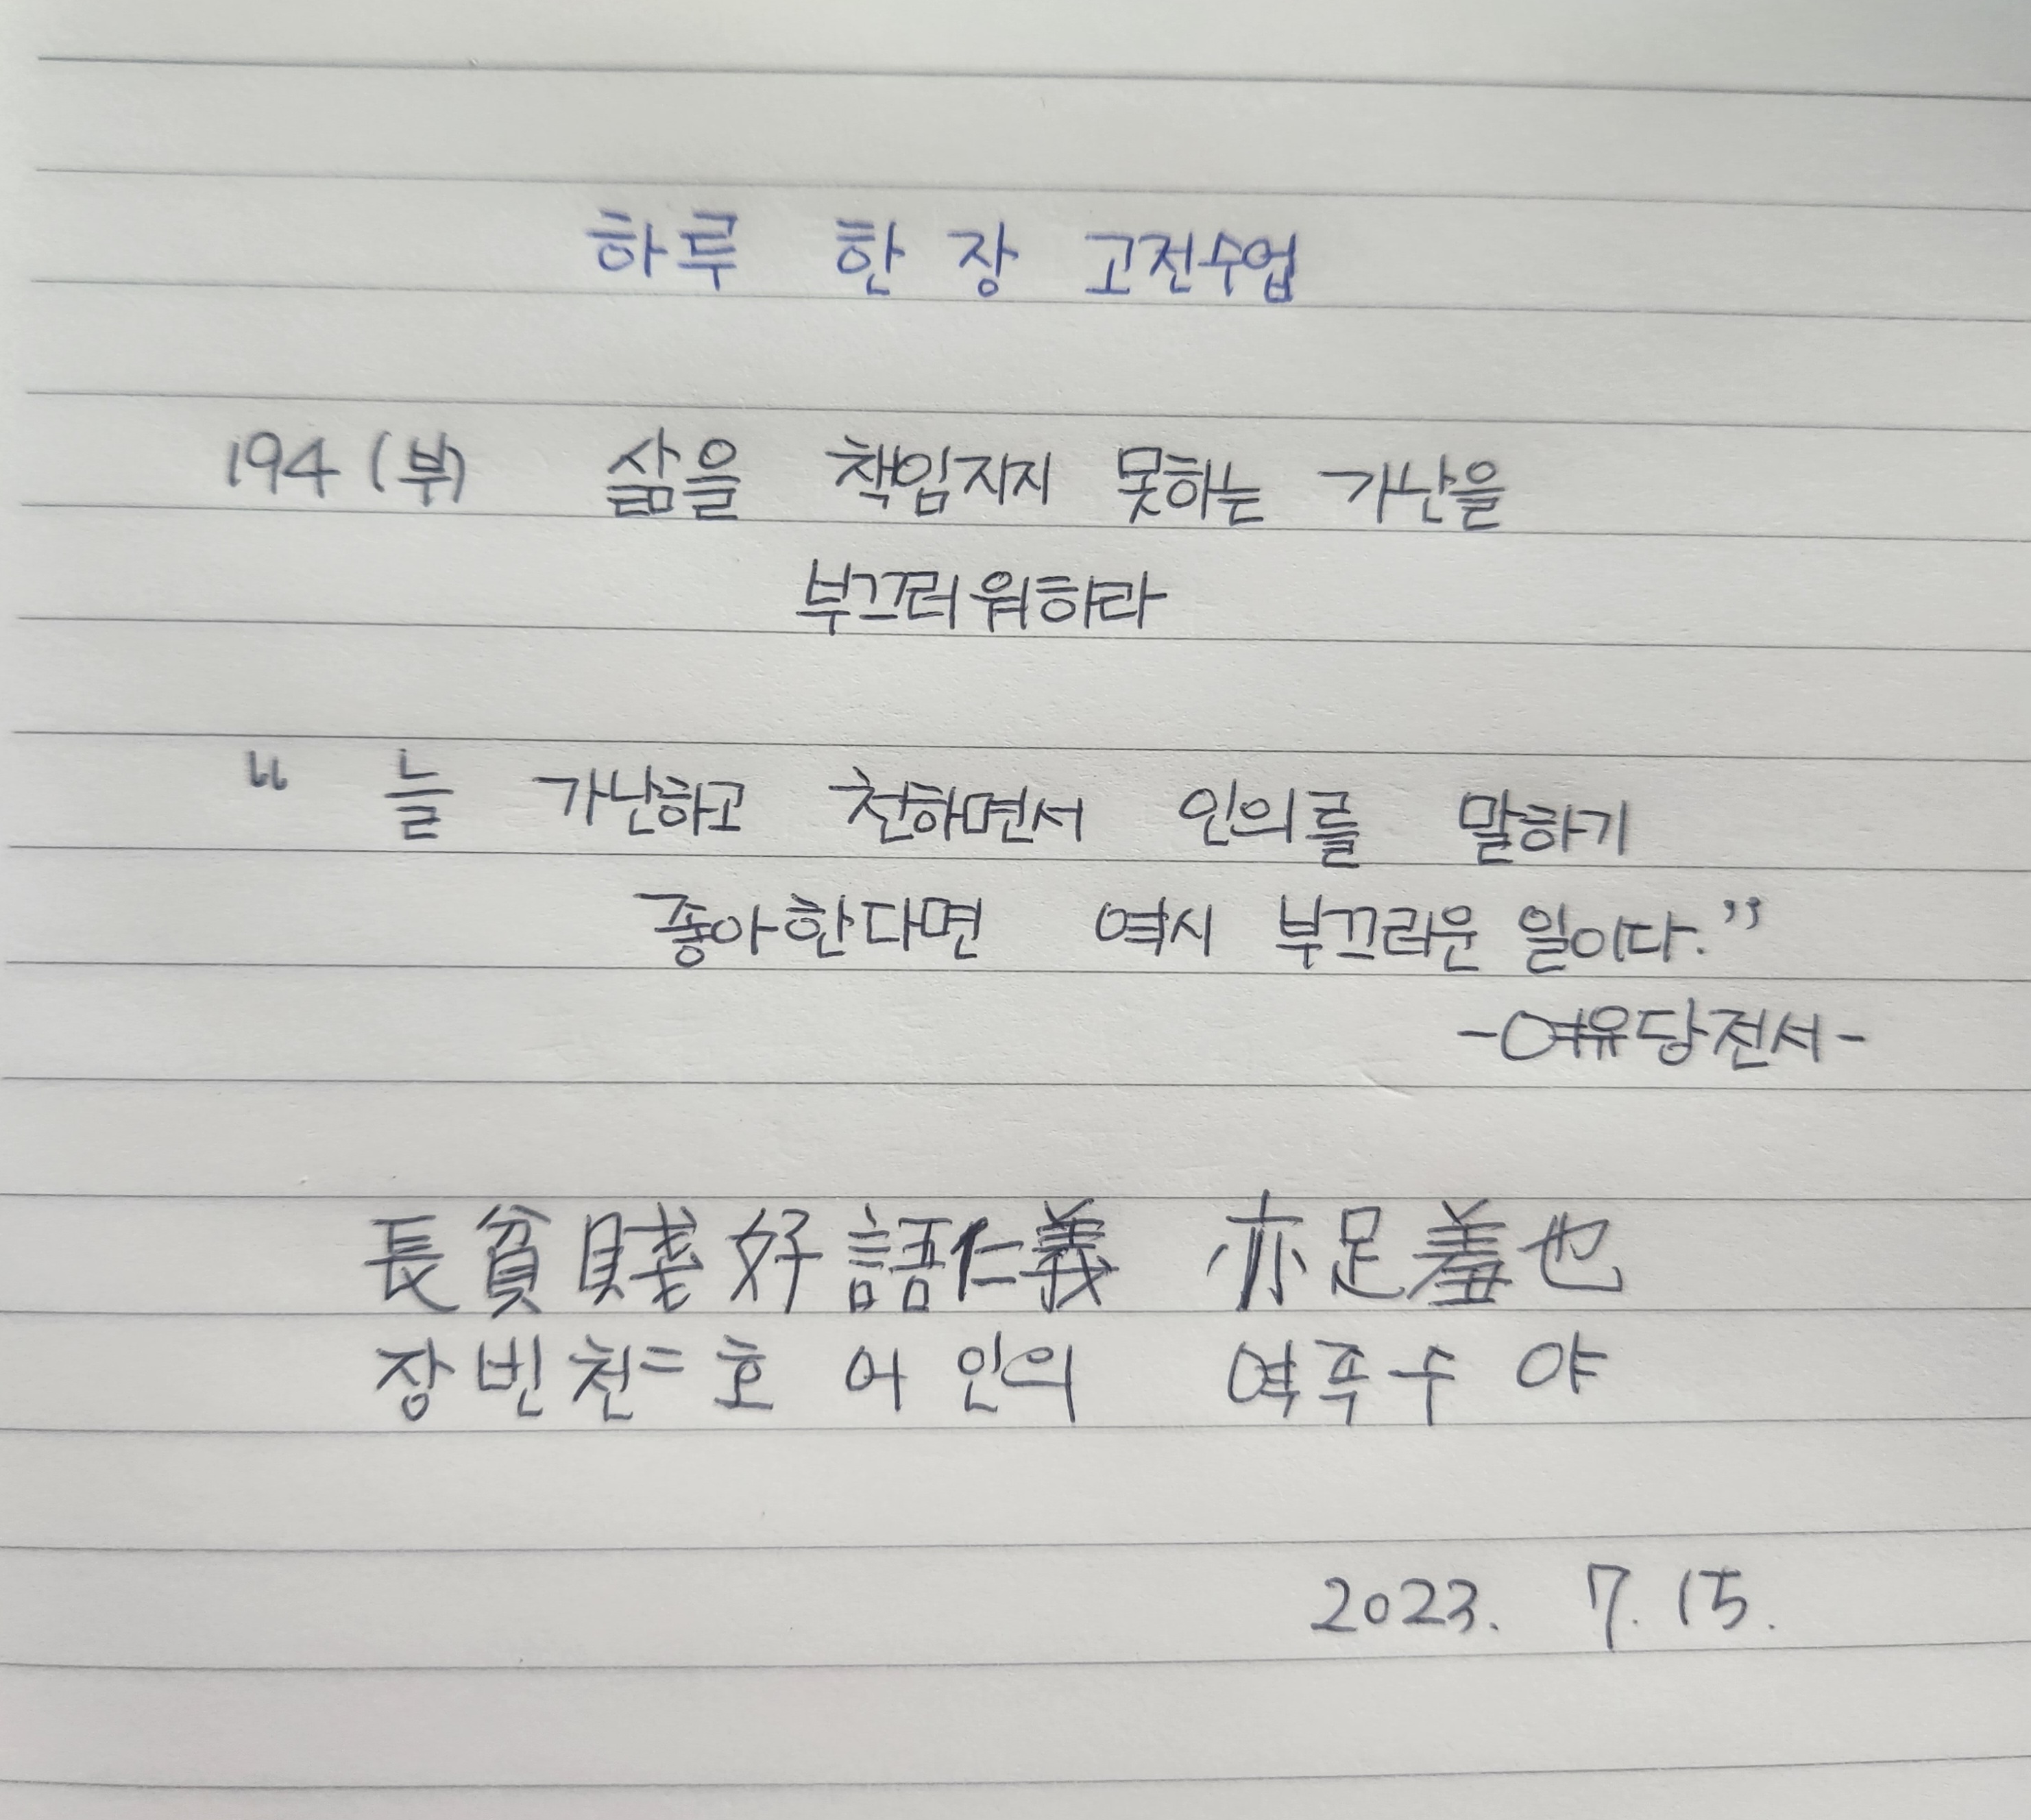 하루 한 장 고전수업
194 (부) 삶을 책임지지 못하는 가난을
부끄러워하라
“ 늘 가난하고 천하면서 인의를 말하기
좋아한다면 역시 부끄러운 일이다.”
-여유당전서-
長貧賤好語仁義 亦足羞也
장빈천=호어인의 역족수야
2023. 7. 15.